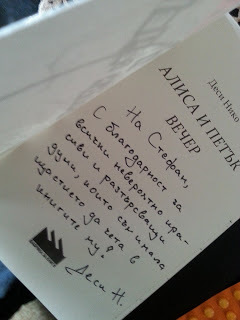 Деси Нико
АЛИСА И ПЕТЪК
ВЕЧЕР
На Стефан,
С благодарност за
всички невероятно кра-
сиви и разтърсващи
думи, които съм имала
щастието да чета в
книгите му!
Деси Н.